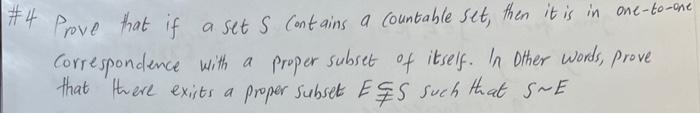 #4 Prove that if a set S Contains a Countable set, then it is in one-to-one
Correspondence with a proper subset of itself. In Other words, prove
that there exists a proper subset E⫋S such that S~E